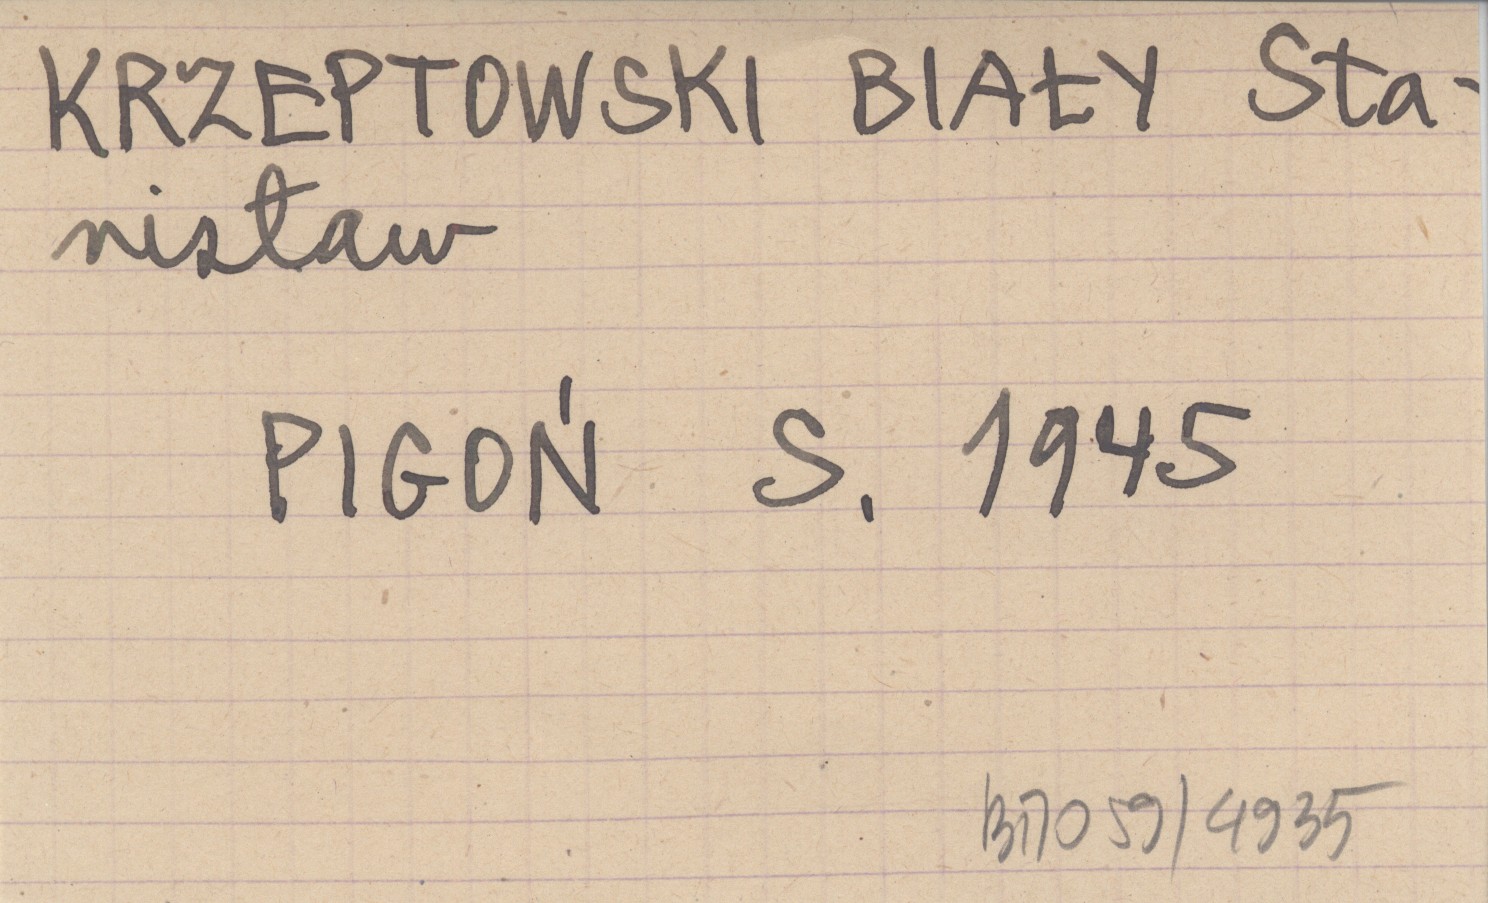 KRZEPTOWSKI BIAŁY Sta-
nisław
PIGOŃ S. 1945
59/4935